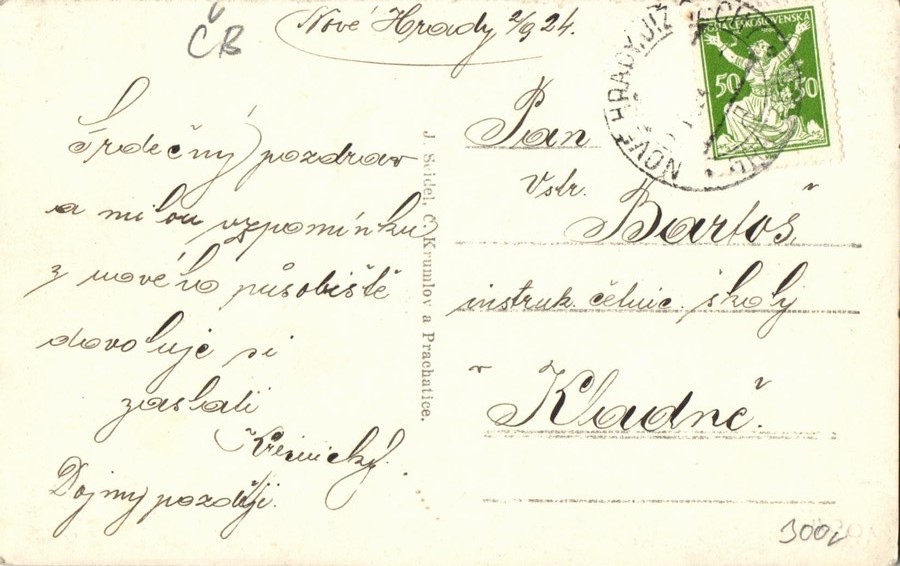 ČB
Nové Hrady 2/9 24.
Srdečný pozdrav
a milou vzpomínku
z nového působiště
dovoluje si
zaslati
Dojmy později.
J. Seidel, Č. Krumlov a Prachatice.
POŠTA ČESKOSLOVENSKÁ
50 50
NOVÉ HRADY
Pan
Vstr.
Bartoš
instruk. četnic. školy
v Kladně.
300,